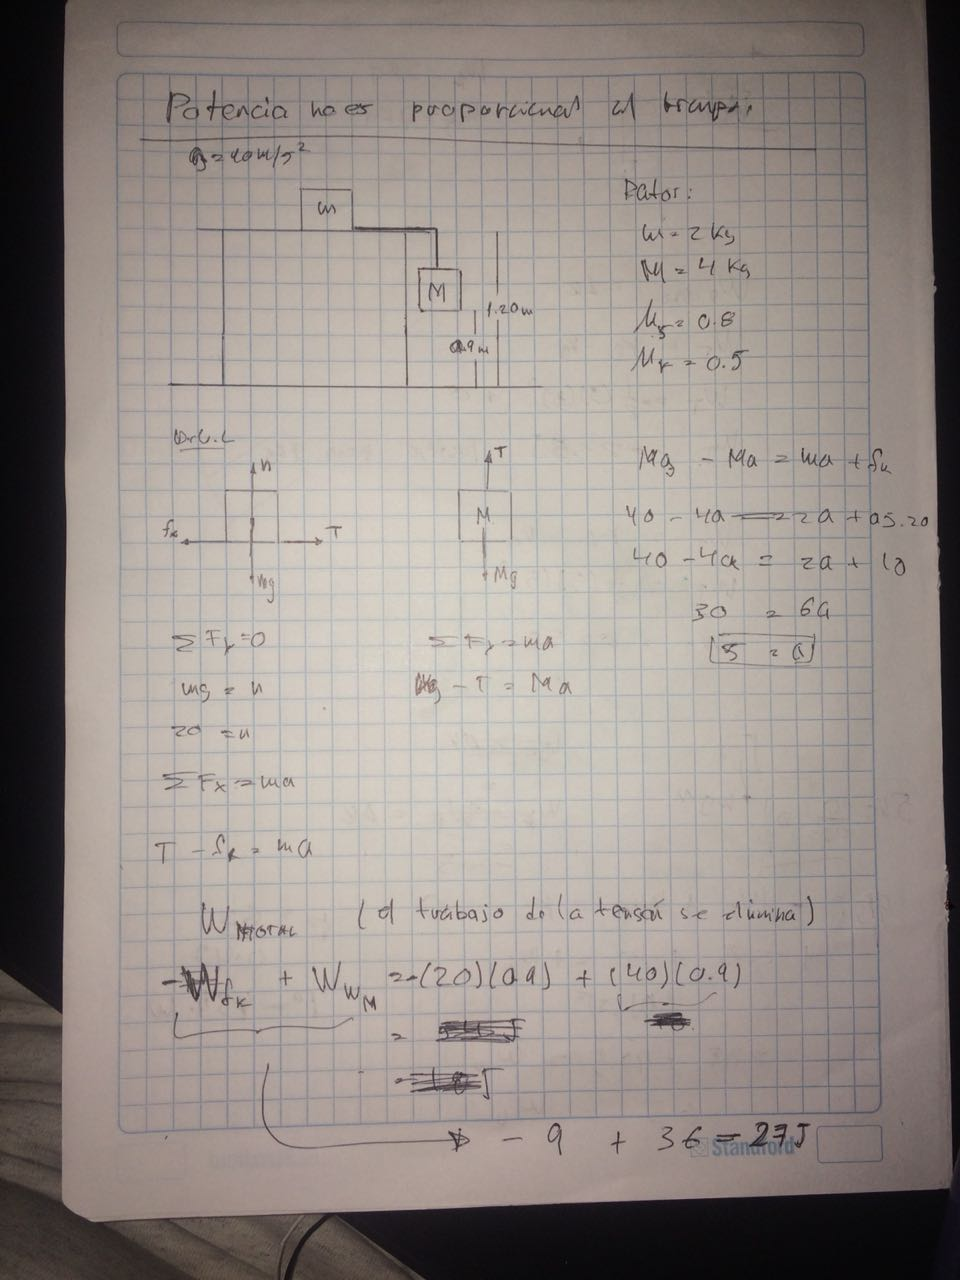 Potencia no es proporcional al tiempo.
g = 10 m/s²
m
M
1.20m
0.9m
Datos:
m = 2 kg
M = 4 kg
μs = 0.8
μk = 0.5
D.C.L
n
fk
T
mg
T
M
Mg
Mg - Ma = ma + fk
40 - 4a = 2a + 0.5·20
40 - 4a = 2a + 10
30 = 6a
5 = a
ΣFy = 0
mg = n
20 = n
ΣFx = ma
T - fk = ma
ΣFy = ma
Mg - T = Ma
W TOTAL (el trabajo de la tensión se elimina)
Wfk + WWM = -(20)(0.9) + (40)(0.9)
=
- 9 + 36 = 27J
Standford